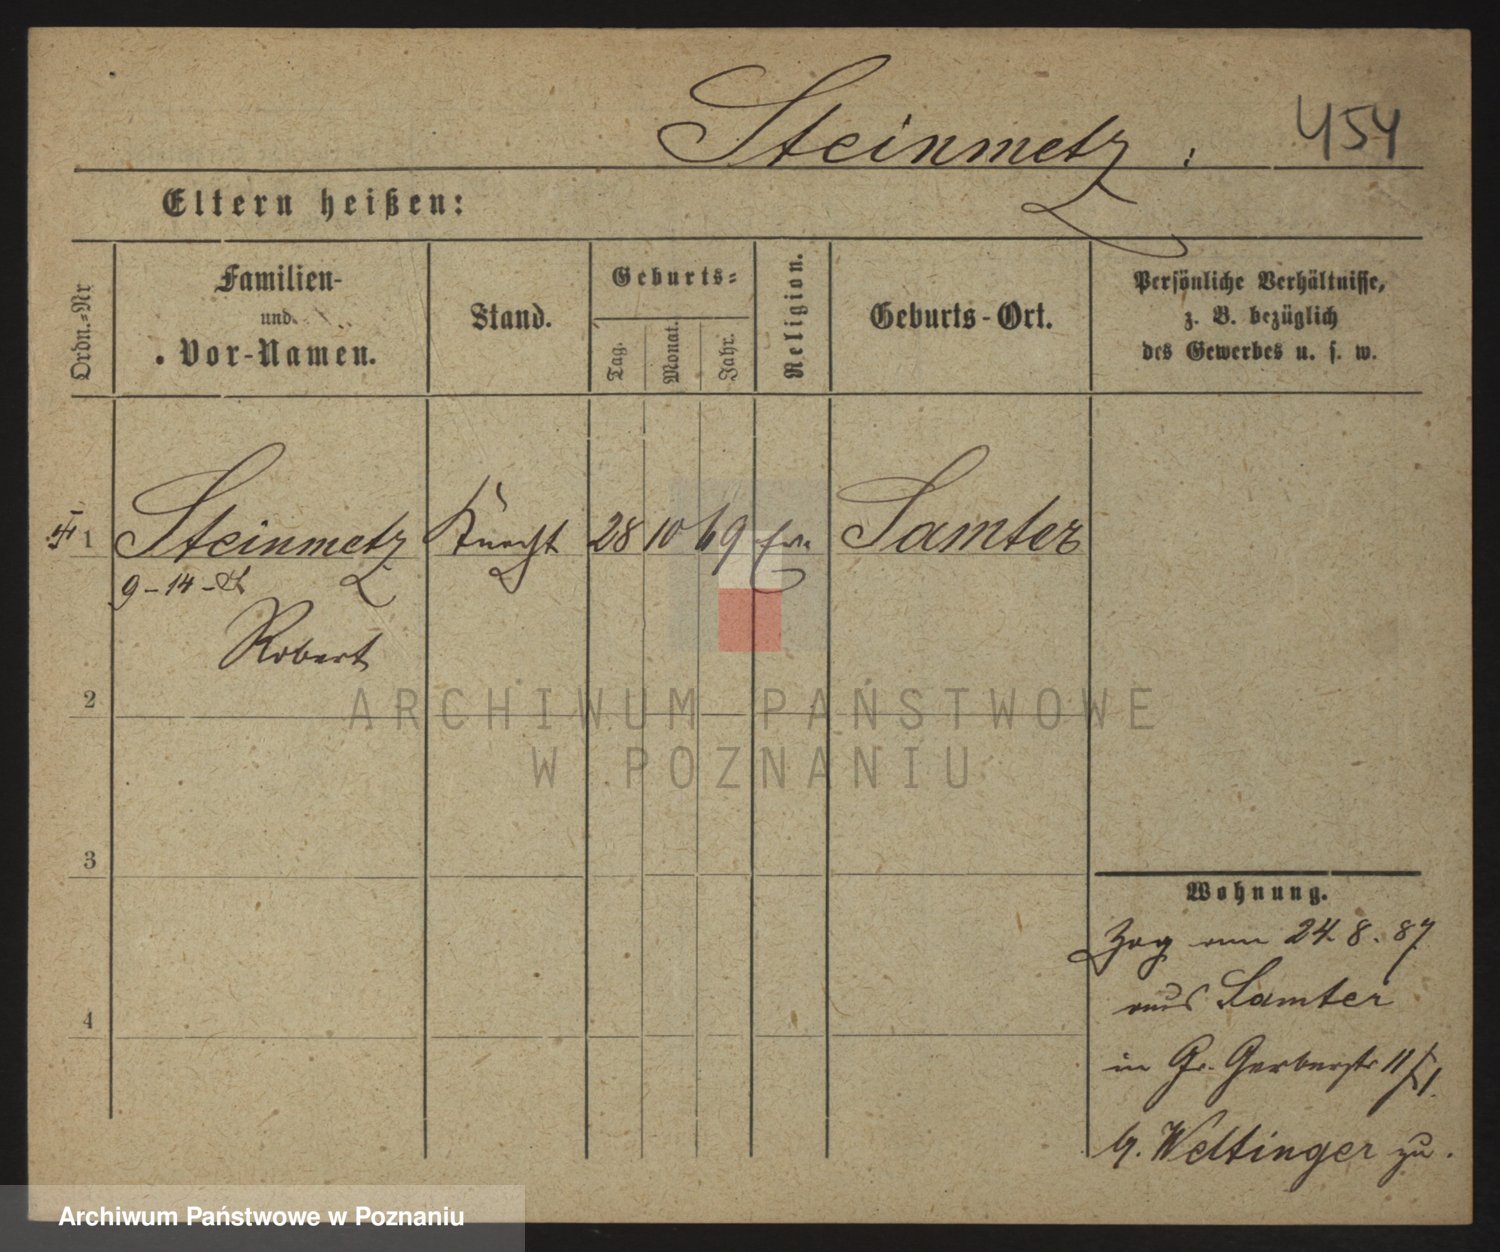 Steinmetz.
454
Eltern heißen:
Ordn.-Nr
Familien-
und
Vor-Namen.
Stand.
Geburts-
Tag.
Monat.
Jahr.
Religion.
Geburts-Ort.
Persönliche Verhältnisse,
z. B. bezüglich
des Gewerbes u. s. w.
1 Steinmetz Knecht 28 10 69 Ev. Samter
9-14-
Robert
2
3
4
Wohnung.
Zog am 24. 8. 87
aus Samter
in Gr. Gerberstr 11/1.
b. Weltinger zu.
ARCHIWUM PAŃSTWOWE
W POZNANIU
Archiwum Państwowe w Poznaniu